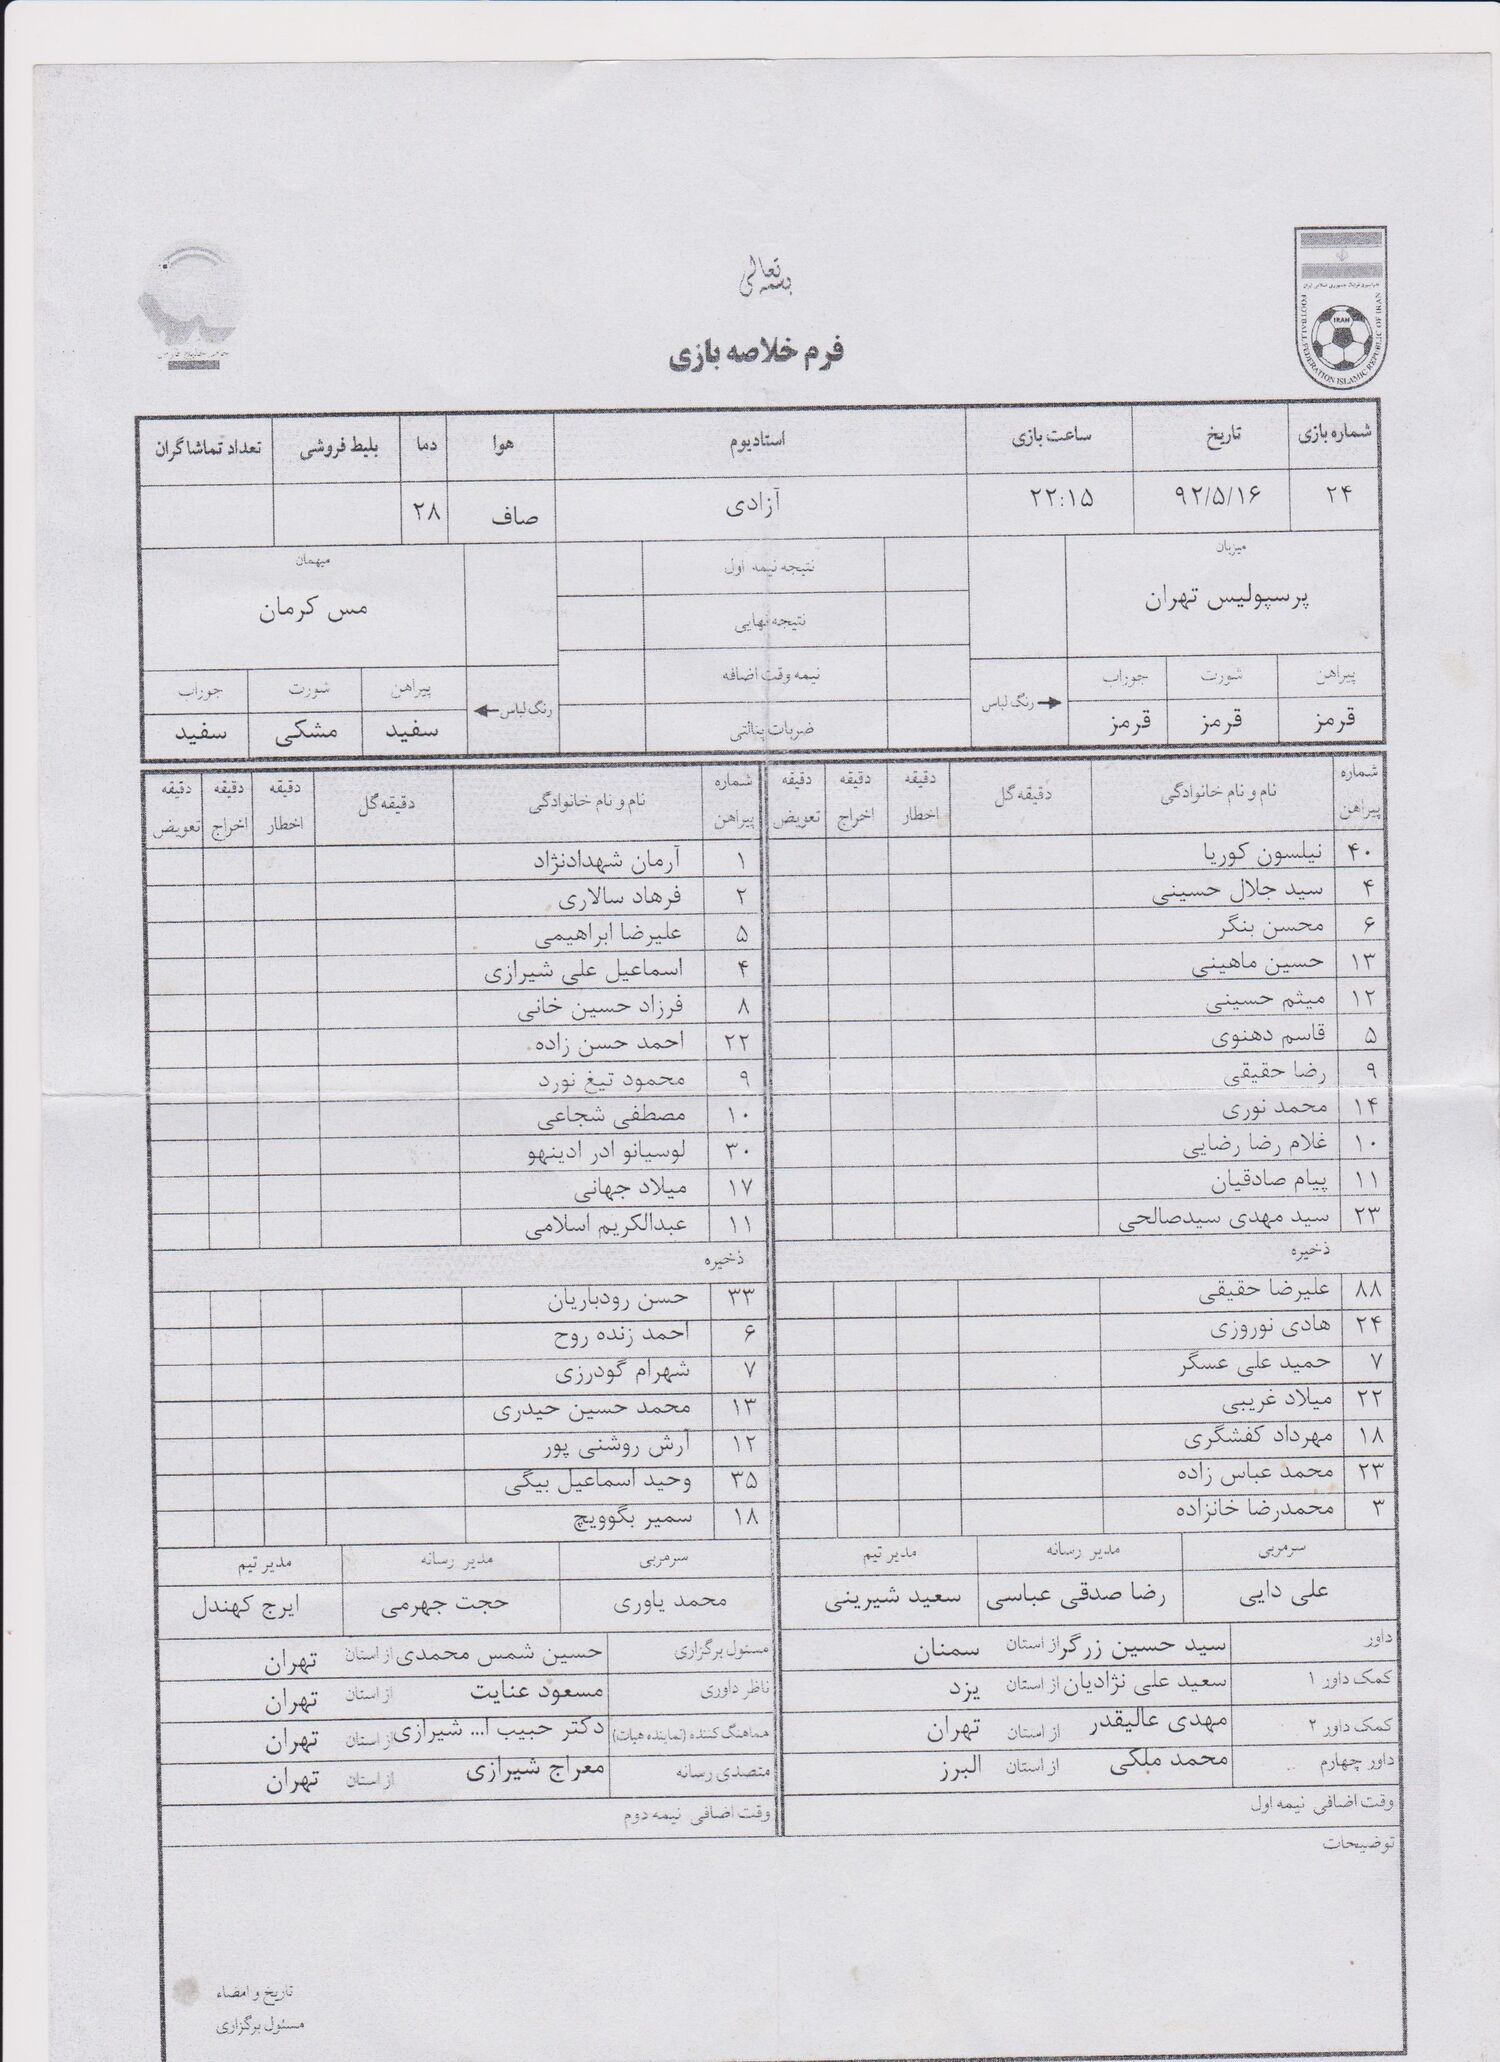 بسمه تعالی
فدراسیون فوتبال جمهوری اسلامی ایران
IRAN
FOOTBALL FEDERATION ISLAMIC REPUBLIC OF IRAN
فرم خلاصه بازی
شماره بازی تاریخ ساعت بازی استادیوم هوا دما بلیط فروشی تعداد تماشاگران
۲۴ ۹۲/۵/۱۶ ۲۲:۱۵ آزادی صاف ۲۸
میزبان نتیجه نیمه اول میهمان
پرسپولیس تهران نتیجه نهایی مس کرمان
پیراهن شورت جوراب رنگ لباس نیمه وقت اضافه رنگ لباس پیراهن شورت جوراب
قرمز قرمز قرمز ضربات پنالتی سفید مشکی سفید
شماره پیراهن نام و نام خانوادگی دقیقه گل دقیقه اخطار دقیقه اخراج دقیقه تعویض شماره پیراهن نام و نام خانوادگی دقیقه گل دقیقه اخطار دقیقه اخراج دقیقه تعویض
۴۰ نیلسون کوریا ۱ آرمان شهدادنژاد
۴ سید جلال حسینی ۲ فرهاد سالاری
۶ محسن بنگر ۵ علیرضا ابراهیمی
۱۳ حسین ماهینی ۴ اسماعیل علی شیرازی
۱۲ میثم حسینی ۸ فرزاد حسین خانی
۵ قاسم دهنوی ۲۲ احمد حسن زاده
۹ رضا حقیقی ۹ محمود تیغ نورد
۱۴ محمد نوری ۱۰ مصطفی شجاعی
۱۰ غلام رضا رضایی ۳۰ لوسیانو ادر ادینهو
۱۱ پیام صادقیان ۱۷ میلاد جهانی
۲۳ سید مهدی سیدصالحی ۱۱ عبدالکریم اسلامی
ذخیره ذخیره
۸۸ علیرضا حقیقی ۳۳ حسن رودباریان
۲۴ هادی نوروزی ۶ احمد زنده روح
۷ حمید علی عسگر ۷ شهرام گودرزی
۲۲ میلاد غریبی ۱۳ محمد حسین حیدری
۱۸ مهرداد کفشگری ۱۲ آرش روشنی پور
۲۳ محمد عباس زاده ۳۵ وحید اسماعیل بیگی
۳ محمدرضا خانزاده ۱۸ سمیر بگوویچ
سرمربی مدیر رسانه مدیر تیم سرمربی مدیر رسانه مدیر تیم
علی دایی رضا صدقی عباسی سعید شیرینی محمد یاوری حجت جهرمی ایرج کهندل
داور سید حسین زرگر از استان سمنان مسئول برگزاری حسین شمس محمدی از استان تهران
کمک داور ۱ سعید علی نژادیان از استان یزد ناظر داوری مسعود عنایت از استان تهران
کمک داور ۲ مهدی عالیقدر از استان تهران هماهنگ کننده (نماینده هیات) دکتر حبیب ا... شیرازی از استان تهران
داور چهارم محمد ملکی از استان البرز متصدی رسانه معراج شیرازی از استان تهران
وقت اضافی نیمه اول وقت اضافی نیمه دوم
توضیحات
تاریخ و امضاء
مسئول برگزاری